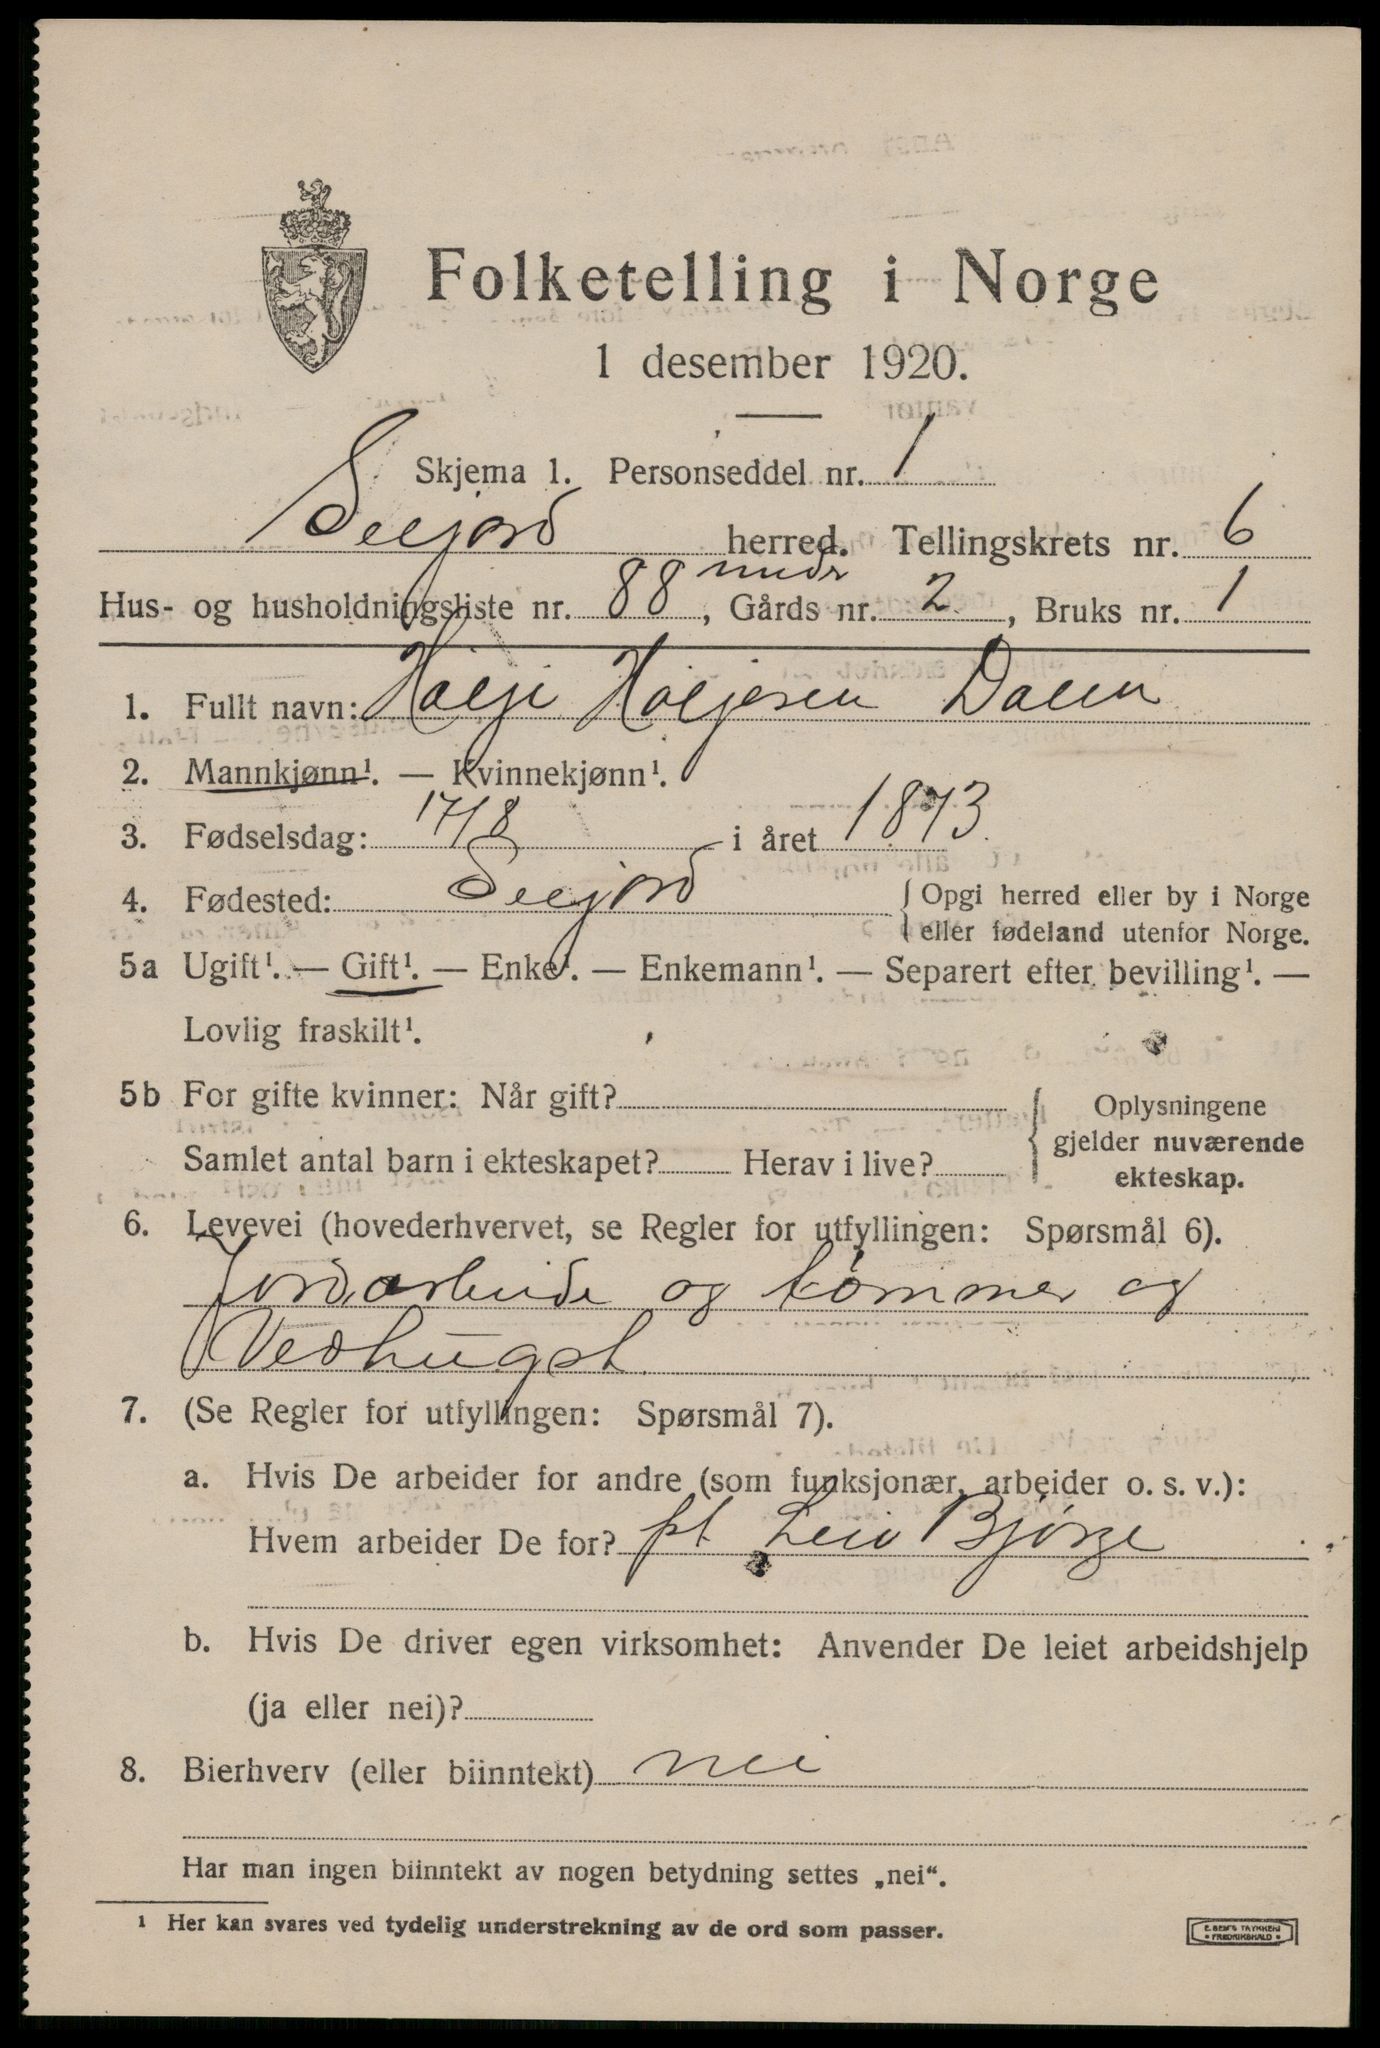 Folketelling i Norge
1 desember 1920.
Skjema 1. Personseddel nr. 1
Seljord herred. Tellingskrets nr. 6
undr
Hus- og husholdningsliste nr. 88, Gårds nr. 2, Bruks nr. 1
1. Fullt navn: Halje Haljesen Dalen
2. Mannkjønn¹. — Kvinnekjønn¹.
3. Fødselsdag: 17/8 i året 1873.
4. Fødested: Seljord { Opgi herred eller by i Norge
eller fødeland utenfor Norge.
5a Ugift¹. — Gift¹. — Enke¹. — Enkemann¹. — Separert efter bevilling¹. —
Lovlig fraskilt¹.
5b For gifte kvinner: Når gift?
Samlet antal barn i ekteskapet? Herav i live?
{ Oplysningene
gjelder nuværende
ekteskap.
6. Levevei (hovederhvervet, se Regler for utfyllingen: Spørsmål 6).
Jordarbeide og tømmer og
Vedhugst
7. (Se Regler for utfyllingen: Spørsmål 7).
a. Hvis De arbeider for andre (som funksjonær, arbeider o. s. v.):
Hvem arbeider De for? pt Leiv Bjørge
b. Hvis De driver egen virksomhet: Anvender De leiet arbeidshjelp
(ja eller nei)?
8. Bierhverv (eller biinntekt) nei
Har man ingen biinntekt av nogen betydning settes „nei“.
¹ Her kan svares ved tydelig understrekning av de ord som passer.
E. SEM'S TRYKKERI
• FREDRIKSHALD •